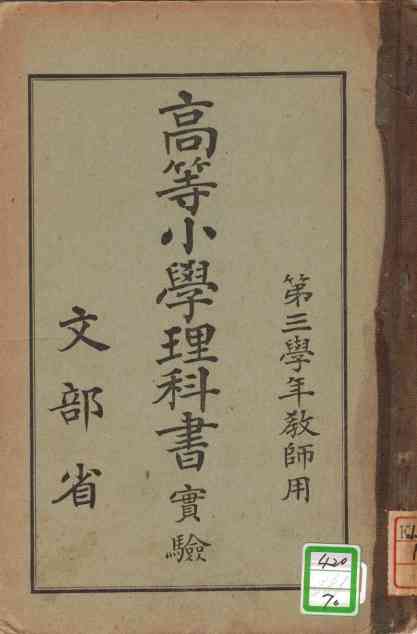 第三學年教師用
高等小學理科書實驗
文部省
420
70